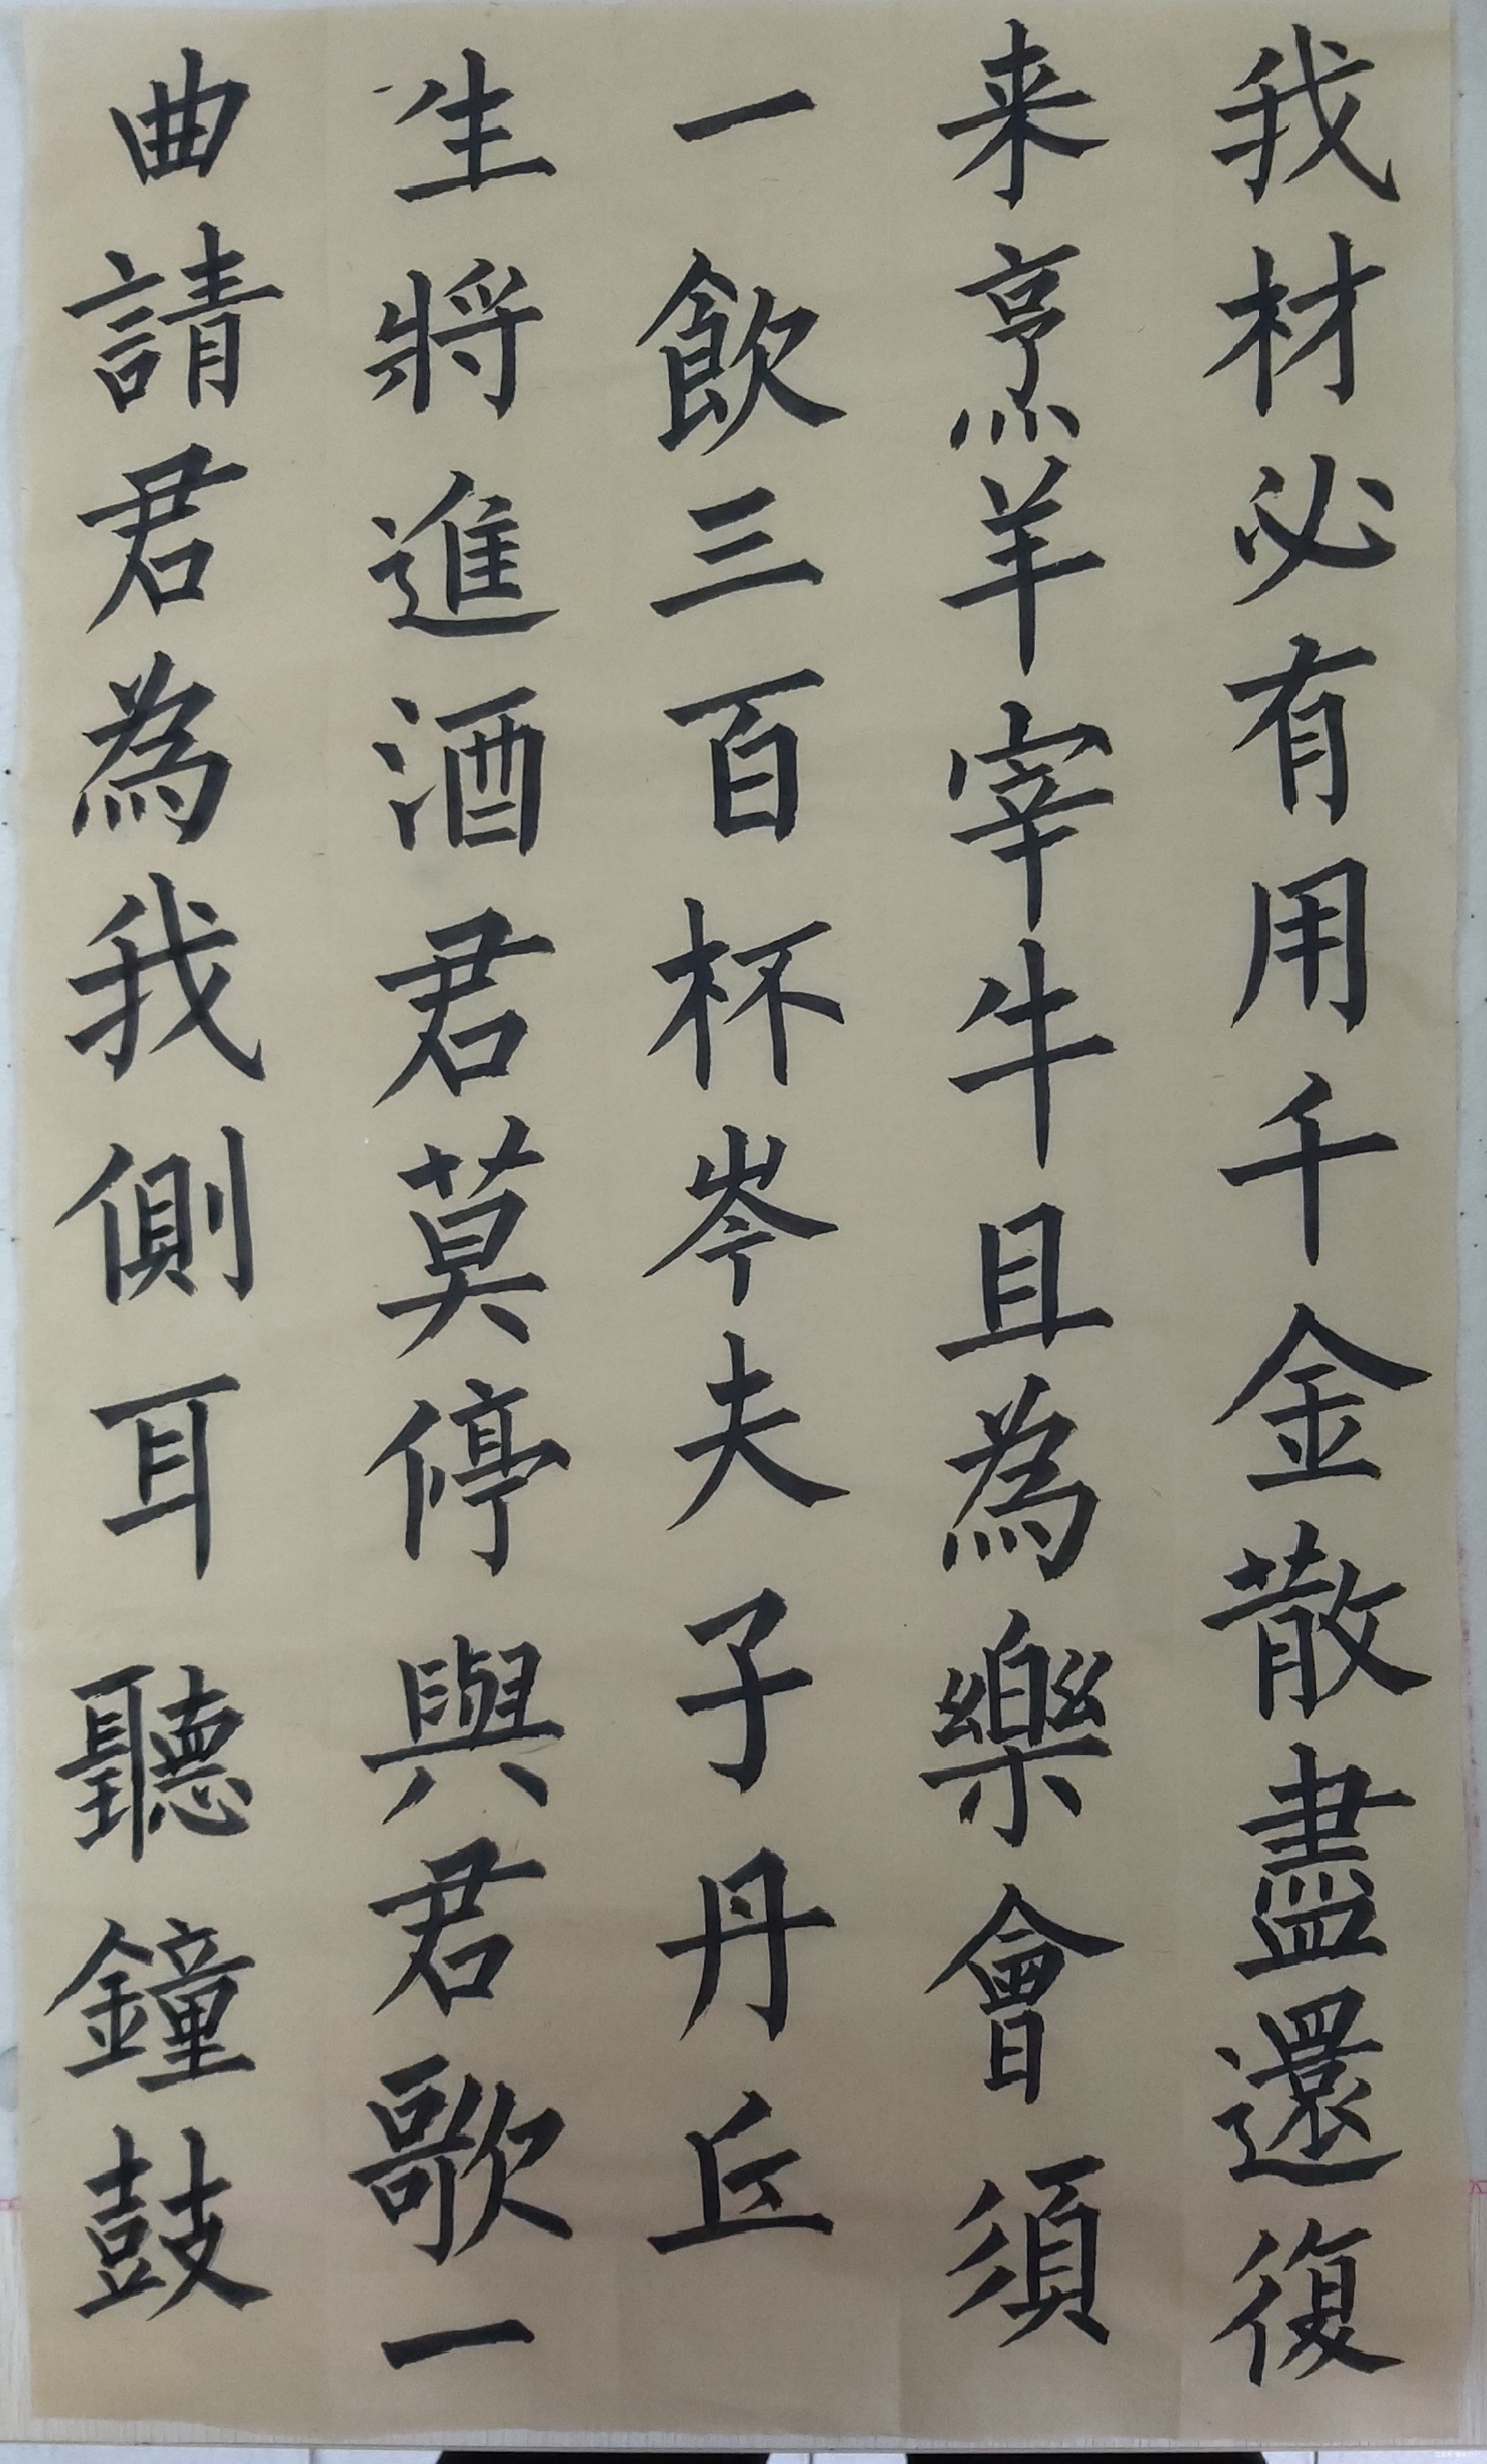 我材必有用千金散盡還復
来烹羊宰牛且為樂會須
一飲三百杯岑夫子丹丘
生將進酒君莫停與君歌一
曲請君為我側耳聽鐘鼓